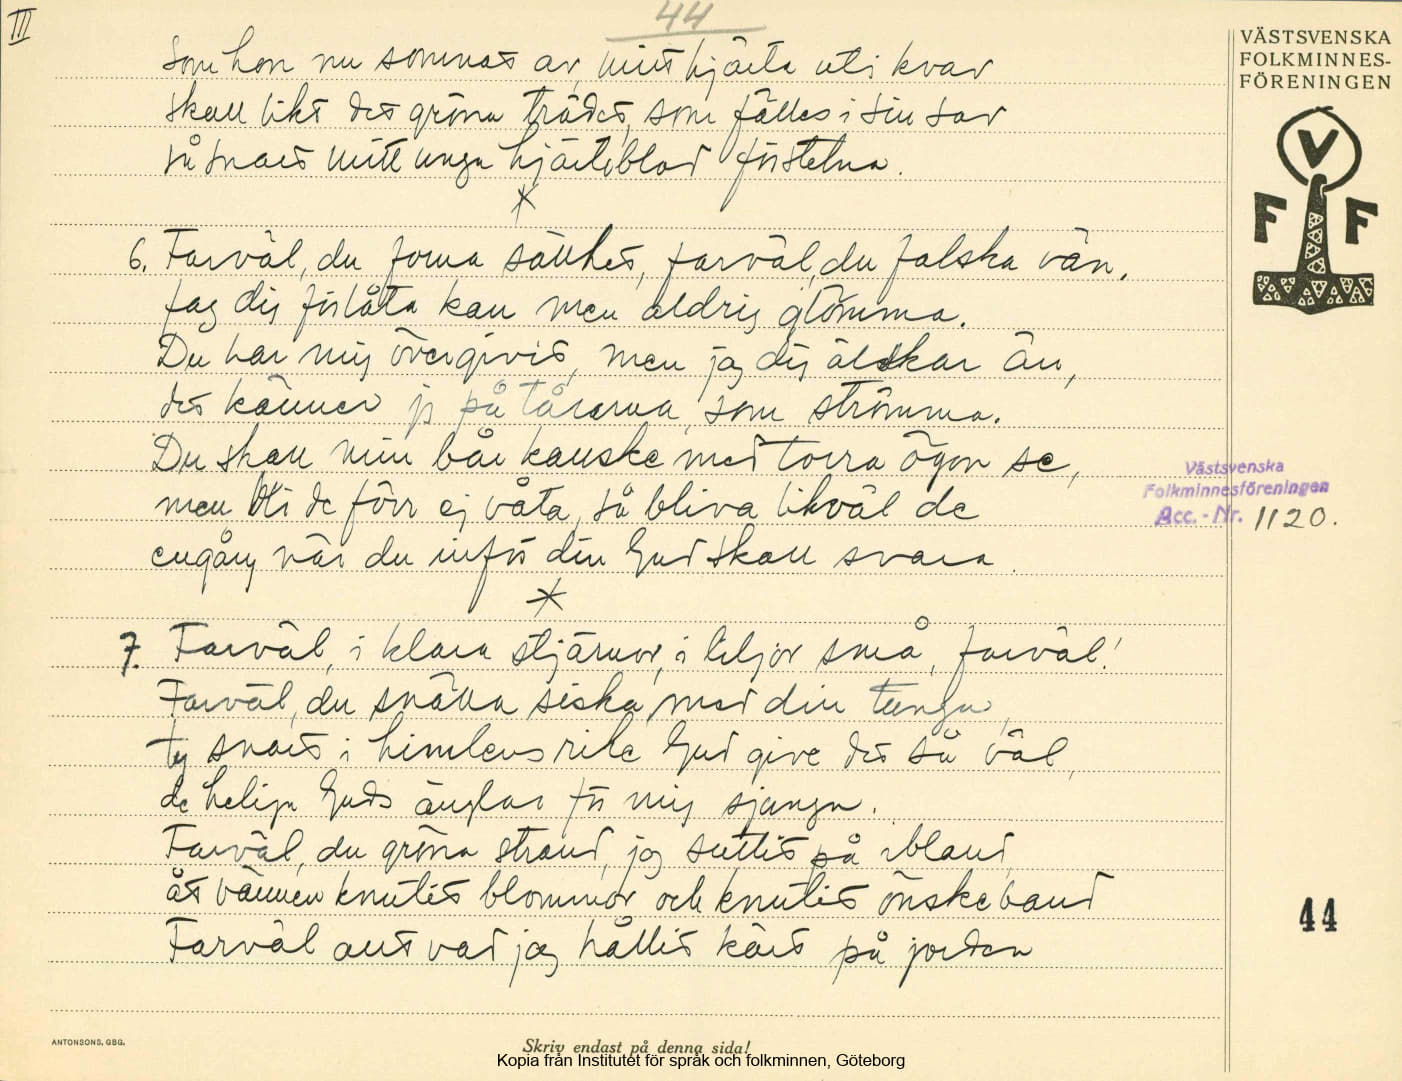 III
44
VÄSTSVENSKA
FOLKMINNES-
FÖRENINGEN
V
F F
som hon nu sommat av, mitt hjärta uti kvar
skall likt det gröna trädet, som fälles i sin sav
så snart mitt unga hjärteblod förstelna.
6. Farväl, du forna sällhet, farväl, du falska vän.
Jag dig förlåta kan men aldrig glömma.
Du har mig övergivit, men jag dig älskar än,
det känner jg på tårarna, som strömma.
Du skall min bår kanske med torra ögon se,
men bli de förr ej våta, så bliva likväl de
engång när du inför din Gud skall svara.
Västsvenska
Folkminnesföreningen
Acc.-Nr. 1120.
7. Farväl, i klara stjärnor, i liljor små, farväl!
Farväl, du snälla siska, med din tunga,
ty snart i himlens rike Gud give det så väl,
de heliga Guds änglar för mig sjunga.
Farväl, du gröna strand, jag suttit på ibland,
åt vännen knutit blommor och knutit önskeband
Farväl allt vad jag hållit kärt på jorden
44
ANTONSONS, GBG.
Skriv endast på denna sida!
Kopia från Institutet för språk och folkminnen, Göteborg